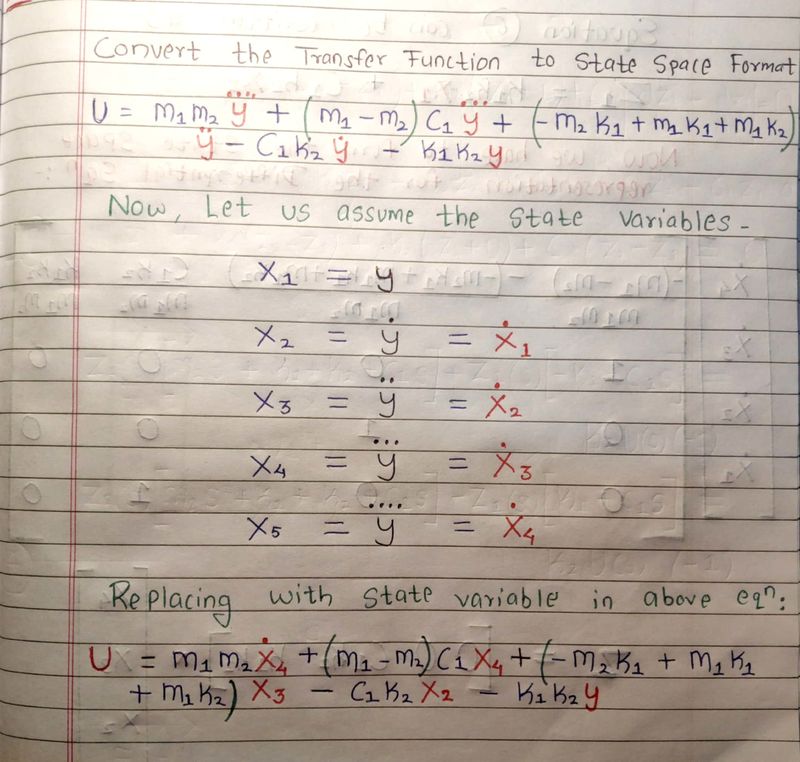 Convert the Transfer Function to State Space Format
U = m₁m₂ y⃜ + (m₁ - m₂) C₁ y⃛ + (-m₂ K₁ + m₁ K₁ + m₁ K₂)
ÿ - C₁K₂ ẏ - K₁K₂y
Now, Let us assume the State Variables -
X₁ = y
X₂ = ẏ = Ẋ₁
X₃ = ÿ = Ẋ₂
X₄ = y⃛ = Ẋ₃
X₅ = y⃜ = Ẋ₄
Replacing with State variable in above eqⁿ:
U = m₁ m₂ Ẋ₄ + (m₁ - m₂) C₁ X₄ + (-m₂ K₁ + m₁ K₁
+ m₁ K₂) X₃ - C₁ K₂ X₂ - K₁ K₂ y